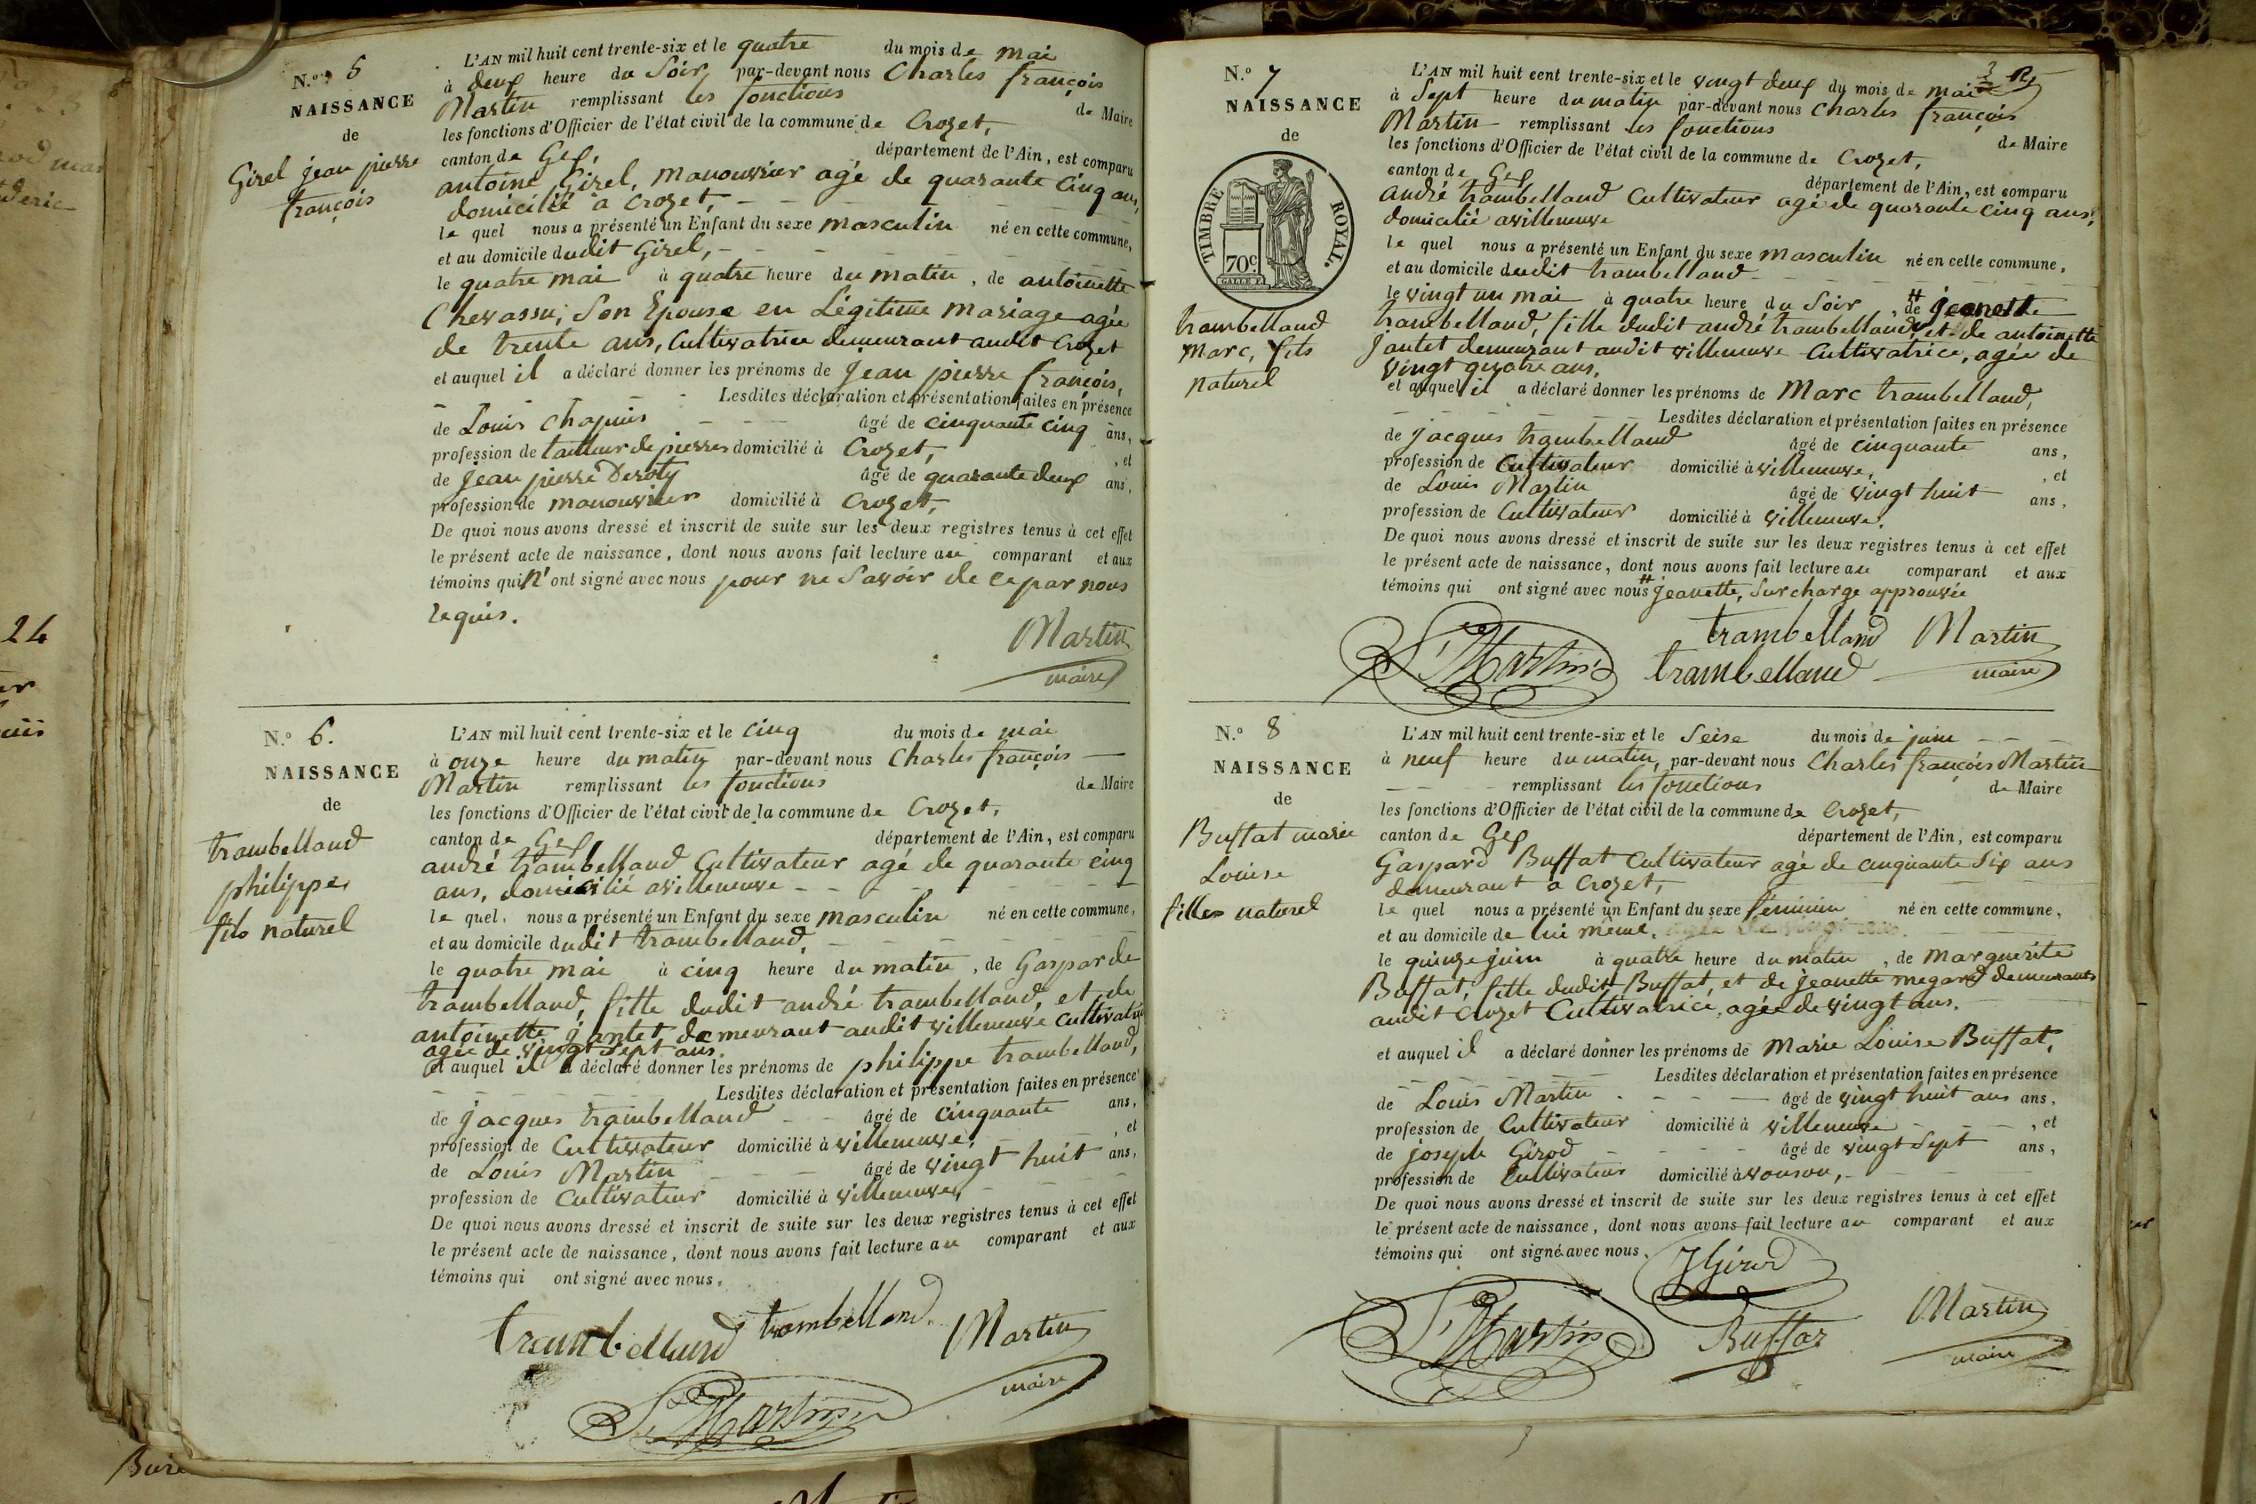 N.º 5
NAISSANCE
de
Girel jean pierre
françois
L'AN mil huit cent trente-six et le quatre du mois de mai
à deux heure du Soir, par-devant nous Charles françois
Martin remplissant les fonctions de Maire
les fonctions d'Officier de l'état civil de la commune de Crozet,
canton de Gex, département de l'Ain, est comparu
antoine Girel, manouvrier agé de quarante cinq ans,
domicilié a Crozet,
le quel nous a présenté un Enfant du sexe masculin né en cette commune,
et au domicile dudit Girel,
le quatre mai à quatre heure du matin, de antoinette
Chevassu, Son Epouse en Légitime mariage agée
de trente ans, Cultivatrice demeurant audit Crozet
et auquel il a déclaré donner les prénoms de jean pierre françois,
Lesdites déclaration et présentation faites en présence
de Louis Chapuis âgé de cinquante cinq ans,
profession de tailleur de pierres domicilié à Crozet, , et
de jean pierre Deroty âgé de quarante deux ans,
profession de manouvrier domicilié à Crozet,
De quoi nous avons dressé et inscrit de suite sur les deux registres tenus à cet effet
le présent acte de naissance, dont nous avons fait lecture au comparant et aux
témoins qui n'ont signé avec nous pour ne Savoir de ce par nous
requis.
Martin
maire
N.º 6.
NAISSANCE
de
trambelland
philippe,
fils naturel
L'AN mil huit cent trente-six et le cinq du mois de mai
à onze heure du matin par-devant nous Charles françois
Martin remplissant les fonctions de Maire
les fonctions d'Officier de l'état civil de la commune de Crozet,
canton de Gex, département de l'Ain, est comparu
andré trambelland Cultivateur agé de quarante cinq
ans, domicilié a villeneuve
le quel, nous a présenté un Enfant du sexe masculin né en cette commune,
et au domicile dudit trambelland,
le quatre mai à cinq heure du matin, de Gasparde
trambelland, fille dudit andré trambelland, et de
antoinette jantet demeurant audit villeneuve Cultivatrice
agée de vingt Sept ans.
et auquel il a déclaré donner les prénoms de philippe trambelland,
Lesdites déclaration et présentation faites en présence
de jacques trambelland âgé de cinquante ans,
profession de Cultivateur domicilié à villeneuve, , et
de Louis Martin âgé de vingt huit ans,
profession de Cultivateur domicilié à villeneuve,
De quoi nous avons dressé et inscrit de suite sur les deux registres tenus à cet effet
le présent acte de naissance, dont nous avons fait lecture au comparant et aux
témoins qui ont signé avec nous.
trambelland trambelland. Martin
maire
L. Martin
N.º 7
NAISSANCE
de
TIMBRE ROYAL.
70c
trambelland
Marc, fils
naturel
L'AN mil huit cent trente-six et le vingt deux du mois de mai
à Sept heure du matin par-devant nous Charles françois
Martin remplissant les fonctions de Maire
les fonctions d'Officier de l'état civil de la commune de Crozet,
canton de Gex département de l'Ain, est comparu
andré trambelland Cultivateur agé de quarante cinq ans,
domicilié a villeneuve
le quel nous a présenté un Enfant du sexe masculin né en cette commune,
et au domicile dudit trambelland
le vingt un mai à quatre heure du Soir, # de jeanette
trambelland, fille dudit andré trambelland, et de antoinette
jantet demeurant audit villeneuve Cultivatrice, agée de
vingt quatre ans.
et auquel il a déclaré donner les prénoms de Marc trambelland,
Lesdites déclaration et présentation faites en présence
de jacques trambelland âgé de cinquante ans,
profession de Cultivateur domicilié à villeneuve, , et
de Louis Martin âgé de vingt huit ans,
profession de Cultivateur domicilié à villeneuve.
De quoi nous avons dressé et inscrit de suite sur les deux registres tenus à cet effet
le présent acte de naissance, dont nous avons fait lecture au comparant et aux
témoins qui ont signé avec nous # jeanette, Surcharge approuvée
trambelland Martin
L. Martin trambelland maire
N.º 8
NAISSANCE
de
Buffat marie
Louise
fille naturel
L'AN mil huit cent trente-six et le Seise du mois de juin
à neuf heure du matin, par-devant nous Charles françois Martin
remplissant les fonctions de Maire
les fonctions d'Officier de l'état civil de la commune de Crozet,
canton de Gex département de l'Ain, est comparu
Gaspard Buffat Cultivateur agé de cinquante Six ans
demeurant a Crozet,
le quel nous a présenté un Enfant du sexe féminin né en cette commune,
et au domicile de lui même.
le quinze juin à quatre heure du matin, de Marguerite
Buffat, fille dudit Buffat, et de jeanette megard demeurants
audit Crozet Cultivatrice, agée de vingt ans.
et auquel il a déclaré donner les prénoms de Marie Louise Buffat,
Lesdites déclaration et présentation faites en présence
de Louis Martin âgé de vingt huit ans ans,
profession de Cultivateur domicilié à villeneuve , et
de joseph Girod âgé de vingt Sept ans,
profession de Cultivateur domicilié à
De quoi nous avons dressé et inscrit de suite sur les deux registres tenus à cet effet
le présent acte de naissance, dont nous avons fait lecture au comparant et aux
témoins qui ont signé avec nous.
J Girod
L. Martin Buffat Martin
maire
24